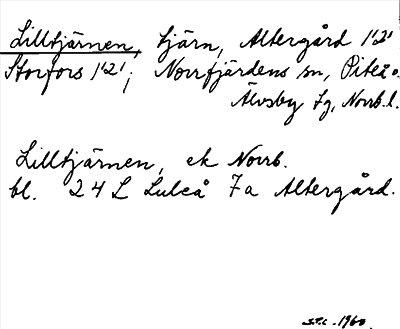 Lilltjärnen, tjärn, Altergård 1'2'
Storfors 1'2'; Norrfjärdens sn, Piteå o.
Älvsby tg, Norrb.l.
Lilltjärnen, ek Norrb.
bl. 24 L Luleå 7a Altergård.
S.P.C. 1960.